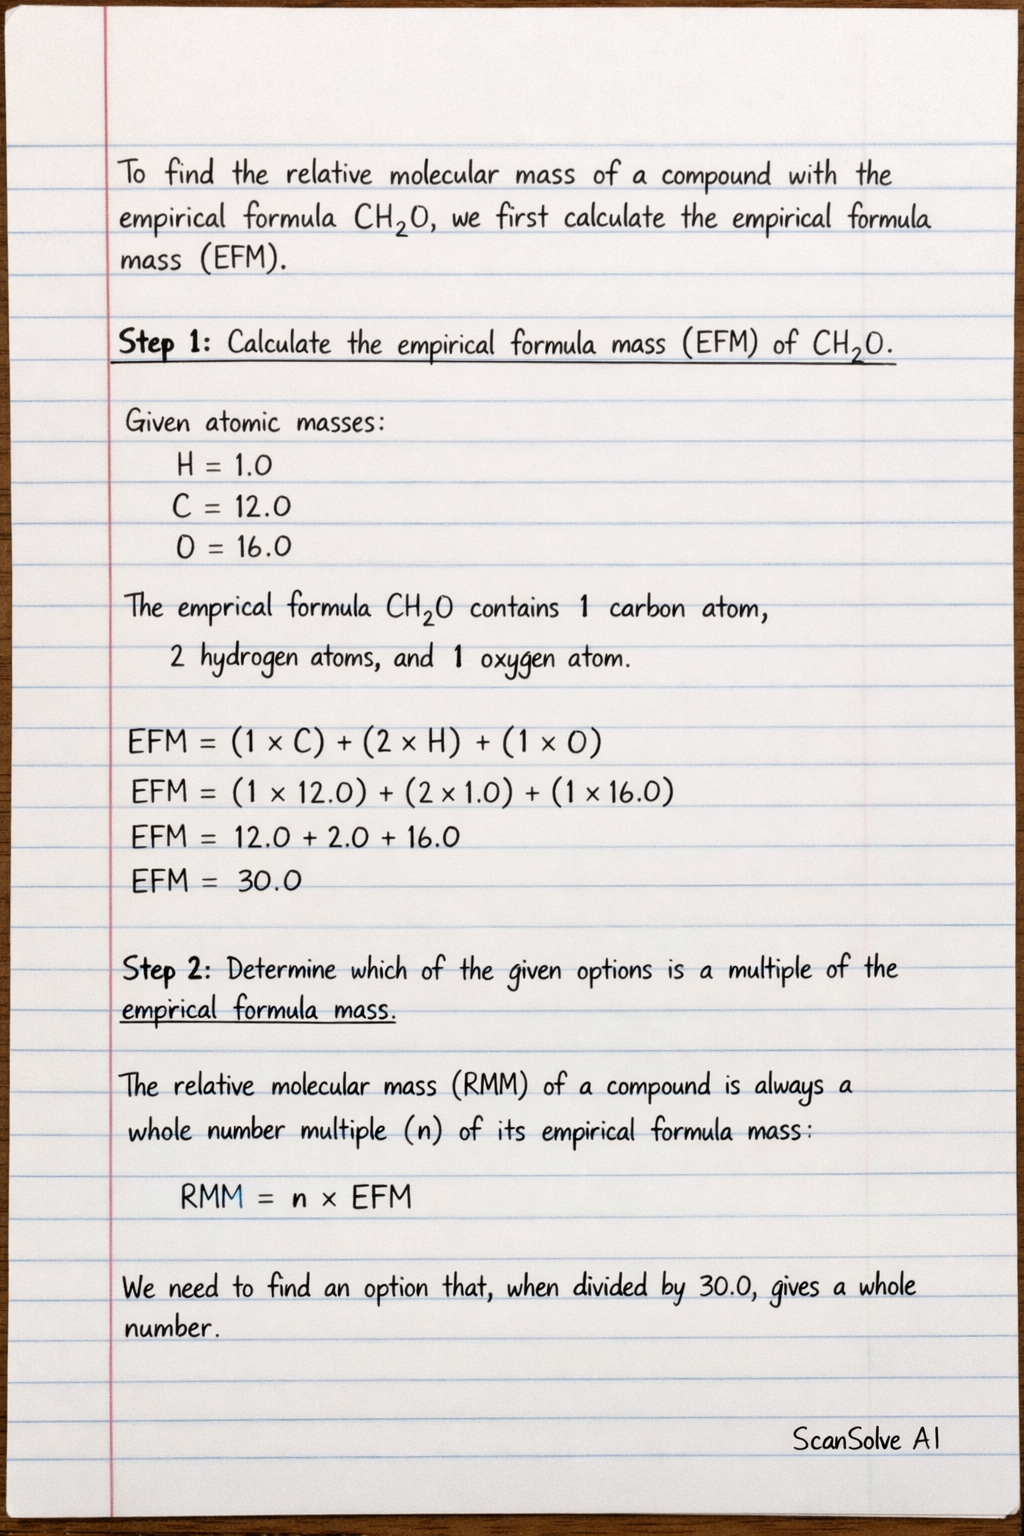 To find the relative molecular mass of a compound with the
empirical formula CH₂O, we first calculate the empirical formula
mass (EFM).
Step 1: Calculate the empirical formula mass (EFM) of CH₂O.
Given atomic masses:
H = 1.0
C = 12.0
O = 16.0
The emprical formula CH₂O contains 1 carbon atom,
2 hydrogen atoms, and 1 oxygen atom.
EFM = (1 × C) + (2 × H) + (1 × O)
EFM = (1 × 12.0) + (2 × 1.0) + (1 × 16.0)
EFM = 12.0 + 2.0 + 16.0
EFM = 30.0
Step 2: Determine which of the given options is a multiple of the
empirical formula mass.
The relative molecular mass (RMM) of a compound is always a
whole number multiple (n) of its empirical formula mass:
RMM = n × EFM
We need to find an option that, when divided by 30.0, gives a whole
number.
ScanSolve AI